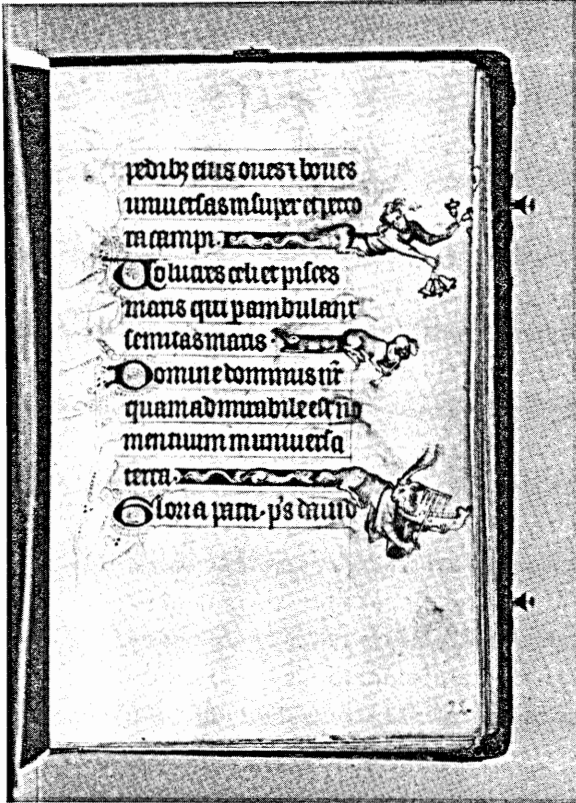 pedibꝫ eius oues ⁊ boues
uniuersas insuper et peco
ra campi.
Uolucres celi et pisces
maris qui pambulant
semitas maris.
Domine dominus nr̄
quam admirabile est no
men tuum in uniuersa
terra.
Gloria patri. p̄s dauid